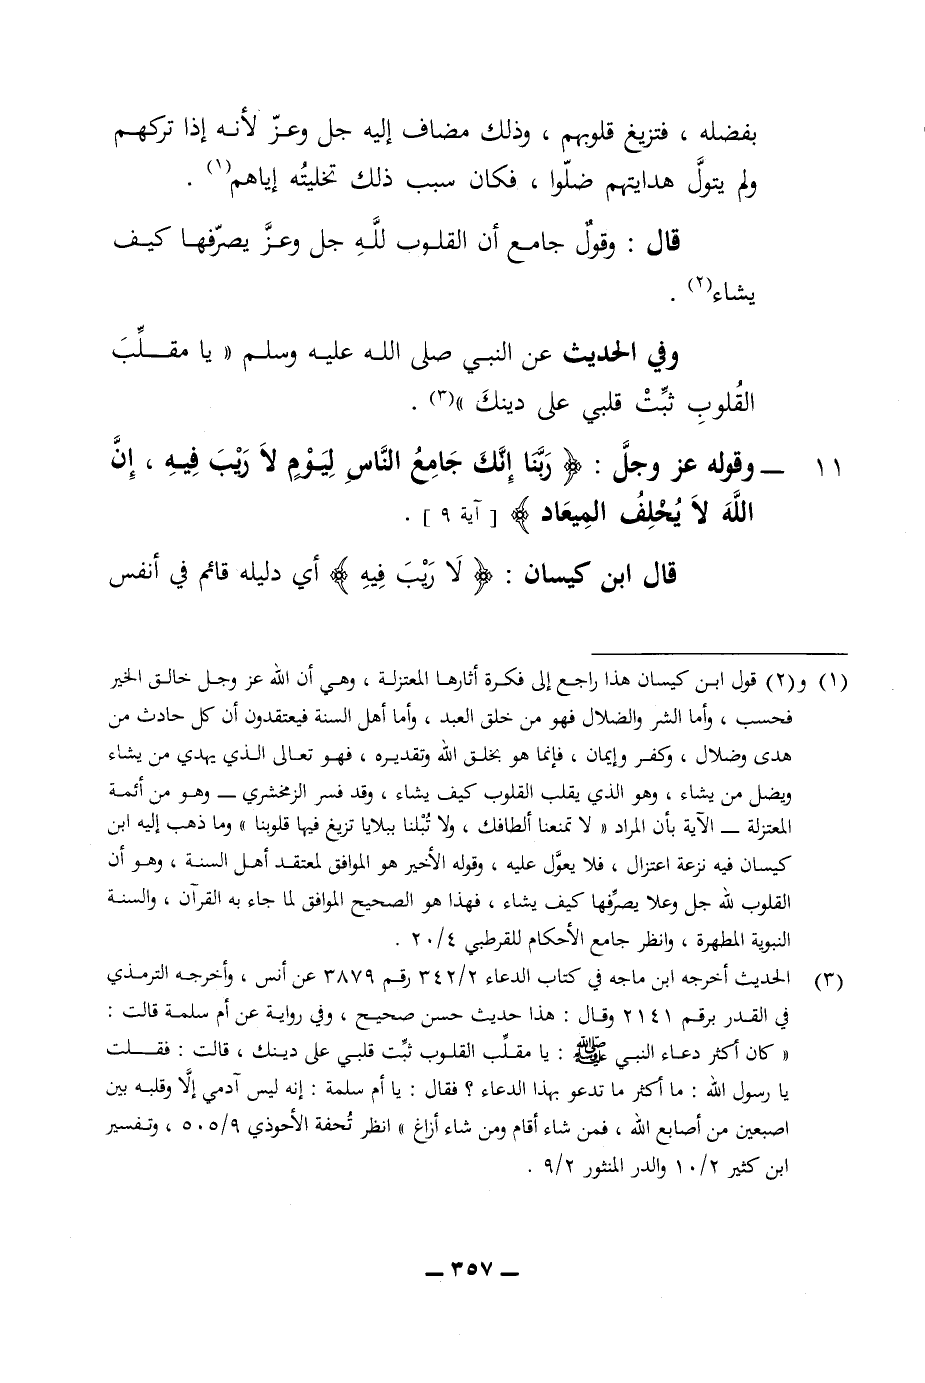 بفضله ، فتزيغ قلوبهم ، وذلك مضاف إليه جل وعزّ لأنه إذا تركهم
ولم يتولَّ هدايتهم ضلّوا ، فكان سبب ذلك تخليتُه إياهم(١) .
قال : وقولٌ جامع أن القلوب للَّهِ جل وعزَّ يصرّفها كيف
يشاء(٢) .
وفي الحديث عن النبي صلى الله عليه وسلم « يا مقلِّبَ
القُلوبِ ثبِّتْ قلبي على دينكَ »(٣) .
١١ ـ وقوله عز وجلَّ : ﴿ رَبَّنَا إِنَّكَ جَامِعُ النَّاسِ لِيَوْمٍ لاَ رَيْبَ فِيهِ ، إِنَّ
اللَّهَ لاَ يُخْلِفُ المِيعَاد ﴾ [ آية ٩ ] .
قال ابن كيسان : ﴿ لَا رَيْبَ فِيهِ ﴾ أي دليله قائم في أنفس
(١) و(٢) قول ابن كيسان هذا راجع إلى فكرة أثارها المعتزلة ، وهي أن الله عز وجل خالق الخير
فحسب ، وأما الشر والضلال فهو من خلق العبد ، وأما أهل السنة فيعتقدون أن كل حادث من
هدى وضلال ، وكفر وإيمان ، فإنما هو بخلق الله وتقديره ، فهو تعالى الذي يهدي من يشاء
ويضل من يشاء ، وهو الذي يقلب القلوب كيف يشاء ، وقد فسر الزمخشري ـ وهو من أئمة
المعتزلة ـ الآية بأن المراد « لا تمنعنا ألطافك ، ولا تُبْلنا ببلايا تزيغ فيها قلوبنا » وما ذهب إليه ابن
كيسان فيه نزعة اعتزال ، فلا يعوَّل عليه ، وقوله الأخير هو الموافق لمعتقد أهل السنة ، وهو أن
القلوب لله جل وعلا يصرِّفها كيف يشاء ، فهذا هو الصحيح الموافق لما جاء به القرآن ، والسنة
النبوية المطهرة ، وانظر جامع الأحكام للقرطبي ٢٠/٤ .
(٣) الحديث أخرجه ابن ماجه في كتاب الدعاء ٣٤٢/٢ رقم ٣٨٧٩ عن أنس ، وأخرجه الترمذي
في القدر برقم ٢١٤١ وقال : هذا حديث حسن صحيح ، وفي رواية عن أم سلمة قالت :
« كان أكثر دعاء النبي ﷺ : يا مقلِّب القلوب ثبِّت قلبي على دينك ، قالت : فقلت
يا رسول الله : ما أكثر ما تدعو بهذا الدعاء ؟ فقال : يا أم سلمة : إنه ليس آدمي إلَّا وقلبه بين
اصبعين من أصابع الله ، فمن شاء أقام ومن شاء أزاغ » انظر تُحفة الأحوذي ٥٠٥/٩ ، وتفسير
ابن كثير ١٠/٢ والدر المنثور ٩/٢ .
ـ ٣٥٧ ـ